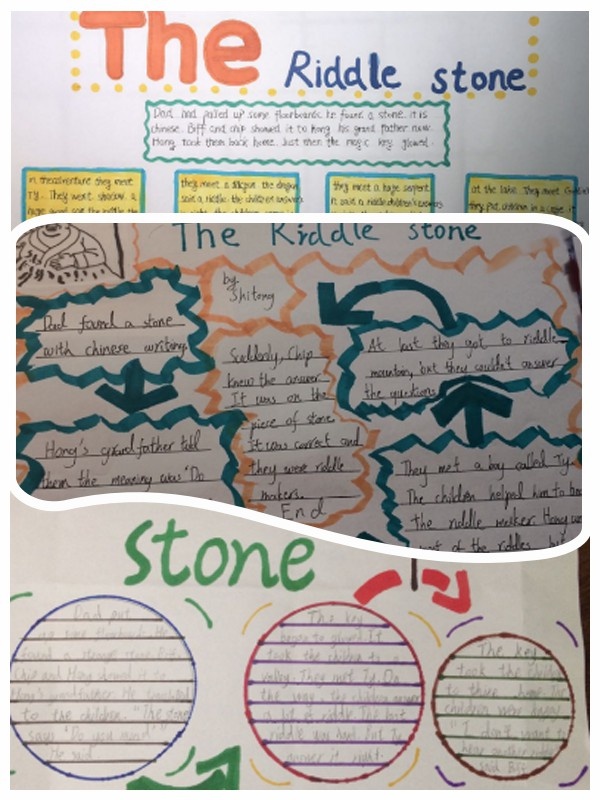 The
Riddle stone
Dad had pulled up some floorboards. he found a stone. it is
chinese. Biff and chip showed it to Hong. his grand father now.
Hong took them back home. Just then the magic key glowed.
in the adventure they meet
Ty. They went
they meet a dragon. the dragon
said a riddle. the children
they meet a huge serpent
it said a riddle. children's
at the lake. They meet
they put
The Riddle stone
by
Shitong
Dad found a stone
with chinese writing
Hong's grandfather told
them the meaning was "Do
Suddenly, Chip
knew the answer
It was on the
piece of stone
It was correct and
they were riddle
makers.
End
At last they got to riddle
mountain, but they couldn't answer
the questions
They met a boy called Ty.
The children helped him to be
the riddle maker. Hong
of the riddles
Stone
Dad put
up some floorboards. He
found a stone. Biff
Chip and Hong showed it to
Hong's grandfather. He
to the children. "The stone
says 'Do you mind'"
He said
The key
began to glowed. It
took the children to a
valley. They met Ty. On
the way, the children answer
a lot of riddle. The last
riddle was hard. But
answer it right.
The key
took the
to their home. The
children were happy.
"I don't want to
hear another riddle"
said Biff